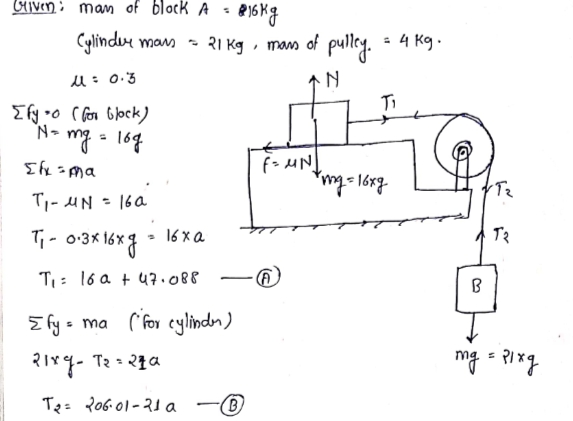 Given: mass of block A = 16kg
Cylinder mass = 21 kg, mass of pulley = 4 kg.
μ = 0.3
Σfy=0 (for block)
N = mg = 16g
Σfx = ma
T1 - μN = 16a
T1 - 0.3×16×g = 16×a
T1 = 16a + 47.088 — Ⓐ
Σfy = ma (for cylinder)
21×g - T2 = 21a
T2 = 206.01-21a — Ⓑ
N
T1
f = μN
mg = 16×g
T2
T2
B
mg = 21×g